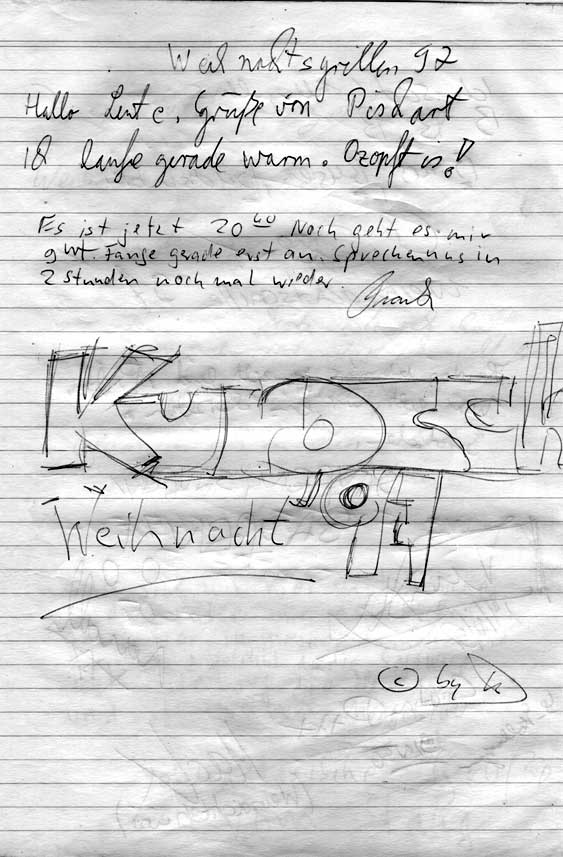 Weihnachtsgrillen 97
Hallo Leute, Grüße von
Ich laufe gerade warm. Ozopft is!
Es ist jetzt 20 40 Noch geht es mir
gut. Fange gerade erst an. Sprechen uns in
2 Stunden noch mal wieder.
Weihnacht "97
© by k